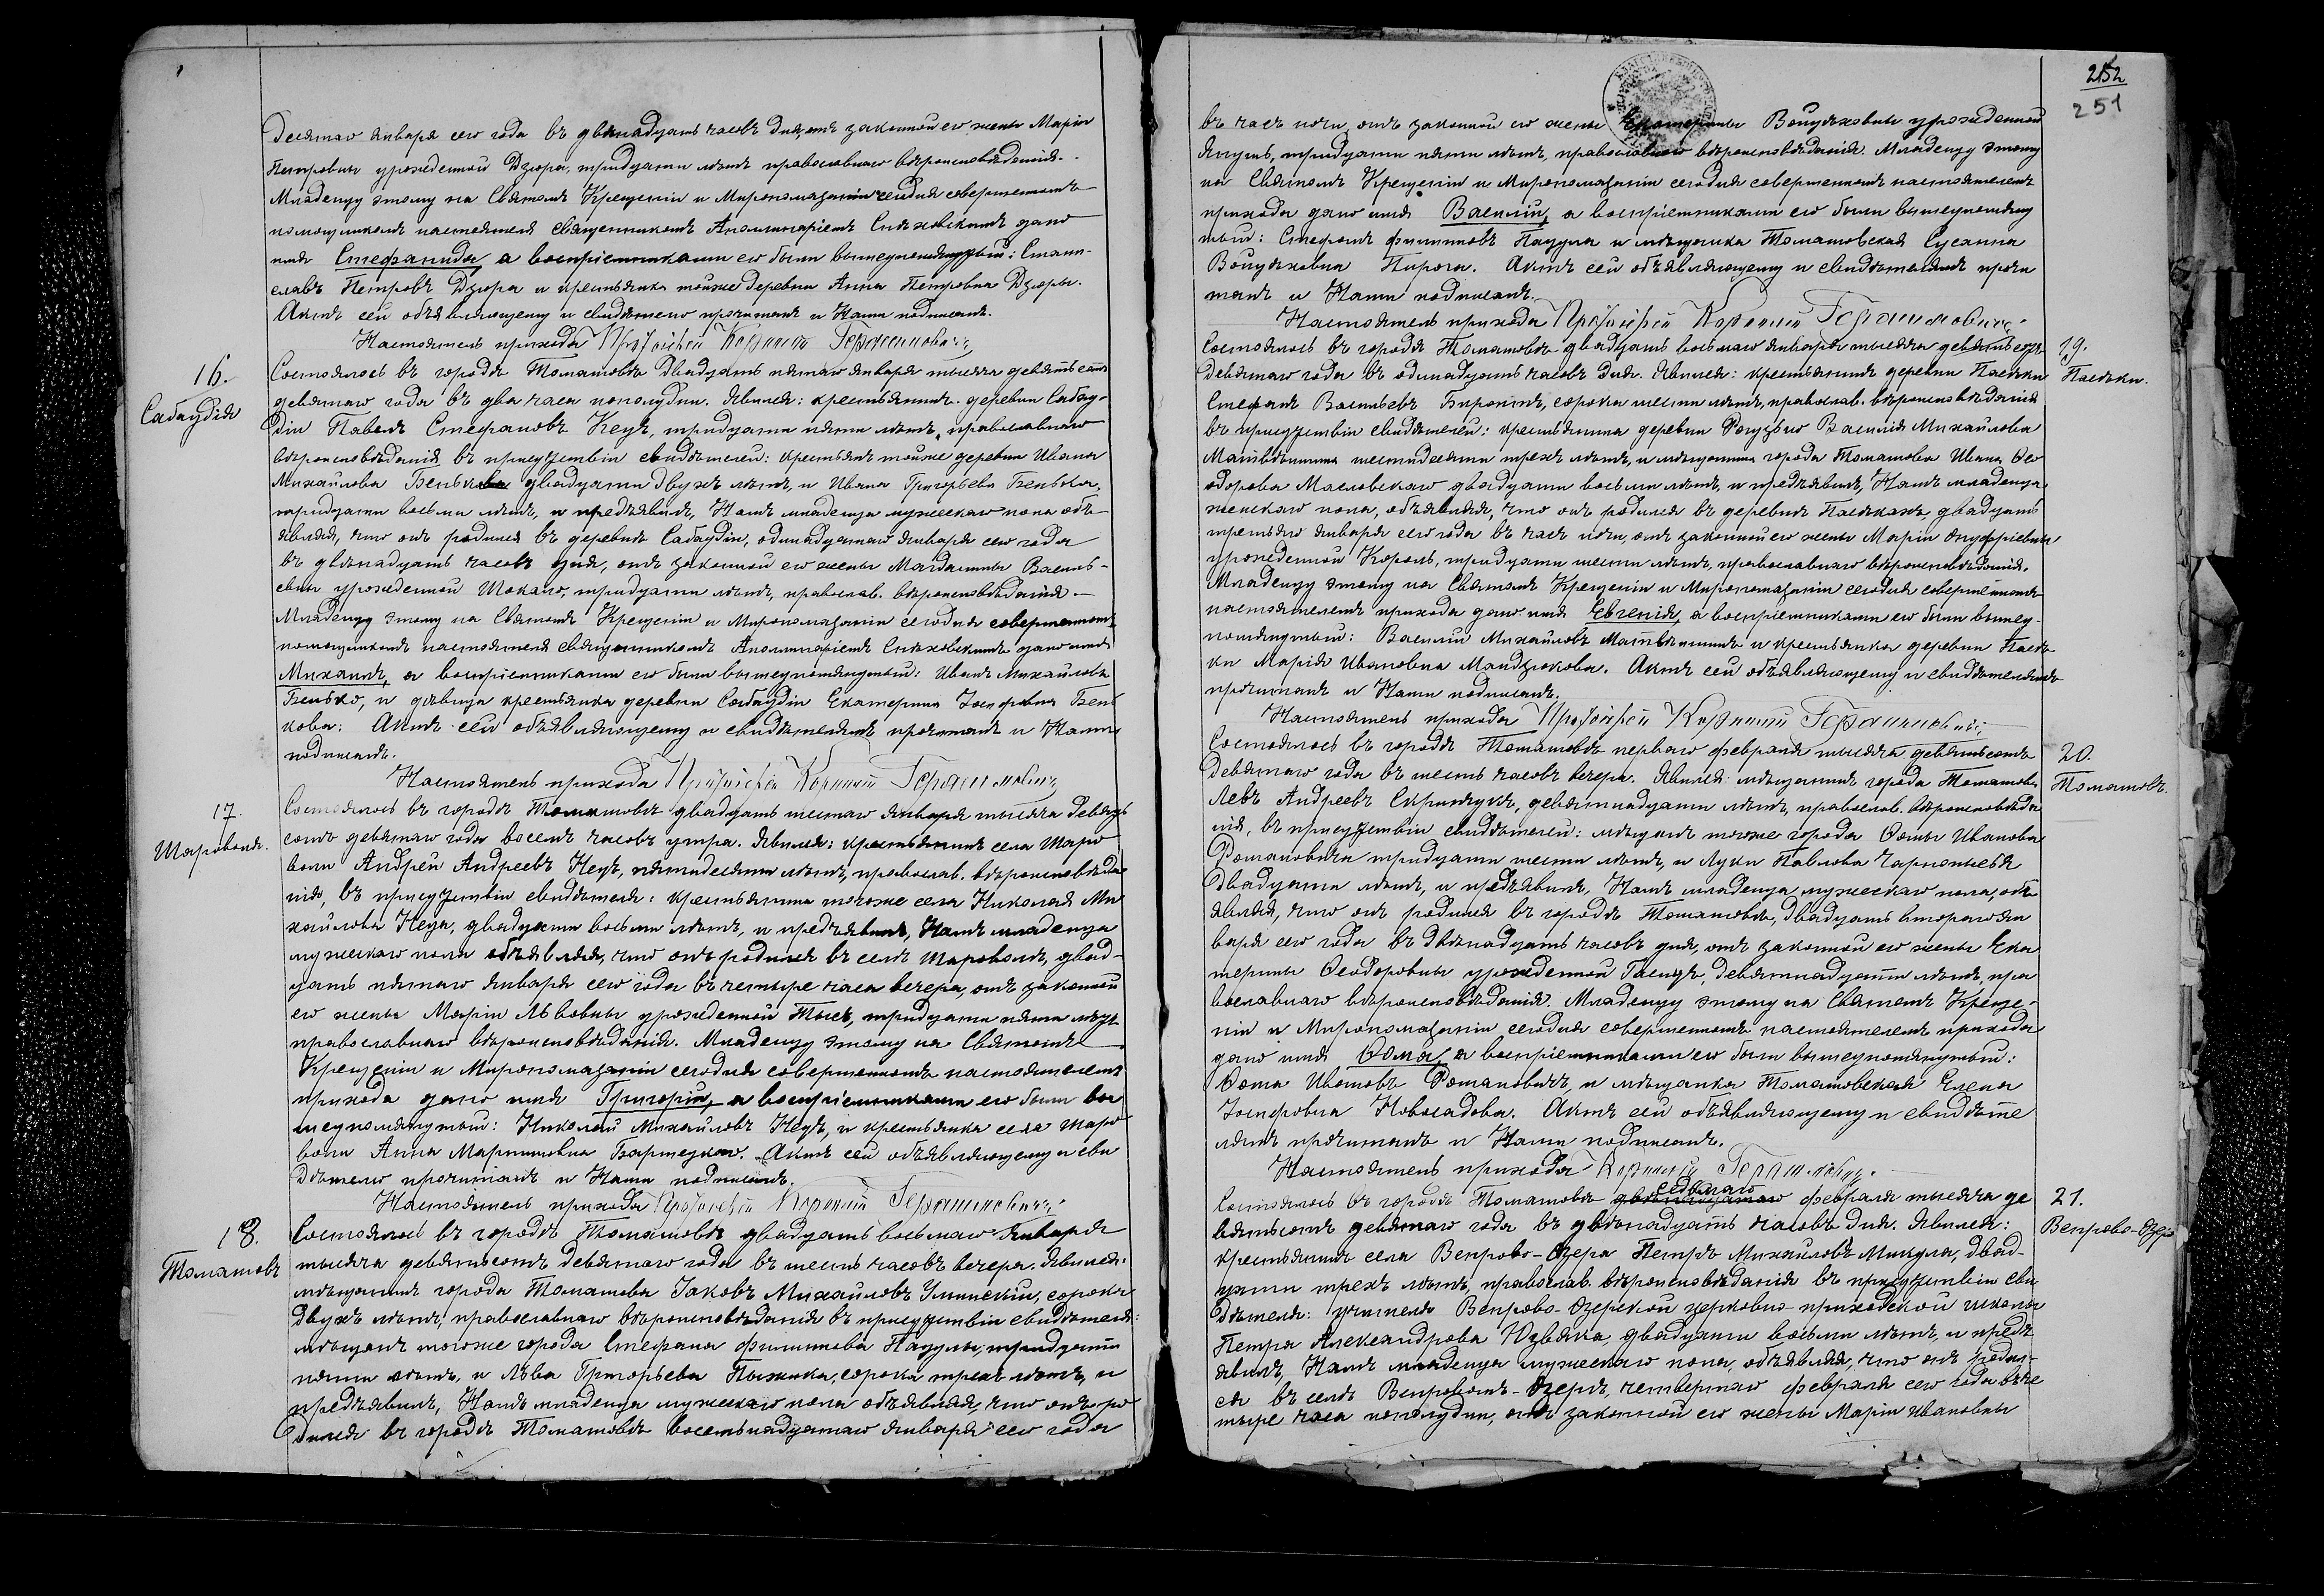 десятаго января сего года въ двѣнадцать часовъ дня, отъ законной его жены Маріи
Петровны урожденной Дзюра, тридцати лѣтъ православнаго вѣроисповѣданія.
Младенцу этому на Святомъ Крещеніи и Миропомазаніи сегодня совершенномъ
помощникомъ настоятеля священникомъ Аполинаріемъ Снѣховскимъ дано
имя Стефанида, а воспріемниками его были вышеупомянутый: Стани-
славъ Петровъ Дзюра и крестьянка тойже деревни Анна Петровна Дзюры.
Актъ сей объявляющему и свидѣтелю прочитанъ и Нами подписанъ.
Настоятель прихода Протоіерей Корнилій Герасимовичъ
16.
Сабаудія
Состоялось въ городѣ Томашовѣ двадцать пятаго января тысяча девятьсотъ
девятаго года въ два часа пополудни. Явился: крестьянинъ деревни Сабау-
діи Павелъ Стефановъ Кецъ, тридцати пяти лѣтъ, православнаго
вѣроисповѣданія въ присутствіи свидѣтелей: крестьянъ тойже деревни Ивана
Михайлова Бенька двадцати двухъ лѣтъ, и Ивана Григорьева Бенька,
тридцати восьми лѣтъ, и предъявилъ, Намъ младенца мужескаго пола объ-
являя, что онъ родился въ деревнѣ Сабаудіи, одинадцатаго января сего года
въ двѣнадцать часовъ дня, отъ законной его жены Магдалины Василь-
евны урожденной Шокало, тридцати лѣтъ, православ. вѣроисповѣданія.
Младенцу этому на Святомъ Крещеніи и Миропомазаніи сегодня совершенномъ
помощникомъ настоятеля священникомъ Аполинаріемъ Снѣховскимъ дано имя
Михаилъ, а воспріемниками его были вышеупомянутый: Иванъ Михайловъ
Бенько, и дѣвица крестьянка деревни Сабаудіи Екатерина Іосифовна Бень
кова: Актъ сей объявляющему и свидѣтелямъ прочитанъ и Нами
подписанъ.
Настоятель прихода Протоіерей Корнилій Герасимовичъ
17.
Шароволя.
Состоялось въ городѣ Томашовѣ двадцать шестаго января тысяча девять
сотъ девятаго года восемь часовъ утра. Явился: крестьянинъ села Шаро
воли Андрей Андреевъ Неце, пятидесяти лѣтъ, православ. вѣроисповѣда
нія, въ присутствіи свидѣтеля: крестьянина тогоже села Николая Ми
хайлова Неца, двадцати восьми лѣтъ, и предъявилъ, Намъ младенца
мужескаго пола объявляя, что онъ родился въ селѣ Шароволѣ, двад-
цать пятаго января сего года въ четыре часа вечера, отъ законной
его жены Маріи Львовны урожденной Тысъ, тридцати пяти лѣтъ
православнаго вѣроисповѣданія. Младенцу этому на Святомъ
Крещеніи и Миропомазаніи сегодня совершенномъ настоятелемъ
прихода дано имя Григорій, а воспріемниками его были вы
шеупомянутый: Николай Михайловъ Нецъ, и крестьянка села Шаро
воли Анна Мартиновна Бартецко. Актъ сей объявляющему и сви
дѣтелю прочитанъ и Нами подписанъ.
Настоятель прихода Протоіерей Корнилій Герасимовичъ
18.
Томашовъ
Состоялось въ городѣ Томашовѣ двадцать восьмаго Января
тысяча девятьсотъ девятаго года въ шесть часовъ вечера. Явился:
мѣщанинъ города Томашова Іаковъ Михайловъ Улинскій, сорока
двухъ лѣтъ, православнаго вѣроисповѣданія въ присутствіи свидѣтеля:
мѣщанъ тогоже города Стефана Филиппова Пацулы, тридцати
пяти лѣтъ, и Льва Григорьева Пыжика, сорока трехъ лѣтъ, и
предъявилъ, Намъ младенца мужескаго пола объявляя, что онъ ро
дился въ городѣ Томашовѣ восемьнадцатаго января сего года
252
251
въ часъ ночи, отъ законной его жены Екатерины Войцѣховны урожденной
Януль, тридцати пяти лѣтъ, православнаго вѣроисповѣданія. Младенцу этому
на Святомъ Крещеніи и Миропомазаніи сегодня совершенномъ настоятелемъ
прихода дано имя Василій, а воспріемниками его были вышеупомяну
тый: Стефанъ Филипповъ Пацула и мѣщанка Томашовская Сусанна
Войцѣховна Пирога. Актъ сей объявляющему и свидѣтелямъ прочи
танъ и Нами подписанъ.
Настоятель прихода Протоіерей Корнилій Герасимовичъ
19.
Пасѣки.
Состоялось въ городѣ Томашовѣ двадцать восьмаго января тысяча девятьсотъ
девятаго года въ одинадцать часовъ дня. Явился: крестьянинъ деревни Пасѣки
Стефанъ Васильевъ Биронтъ, сорока шести лѣтъ, православ. вѣроисповѣданія
въ присутствіи свидѣтелей: крестьянина деревни Рогузьно Василія Михайлова
Матвѣишина шестидесяти трехъ лѣтъ, и мѣщанина города Томашова Ивана Ѳео
дорова Масловскаго двадцати восьми лѣтъ, и предъявилъ, Намъ младенца
женскаго пола, объявляя, что онъ родился въ деревнѣ Пасѣкахъ, двадцать
третьяго января сего года въ часъ ночи, отъ законной его жены Маріи Онуфріевны
урожденной Король, тридцати шести лѣтъ, православнаго вѣроисповѣданія.
Младенцу этому на Святомъ Крещеніи и Миропомазаніи сегодня совершенномъ
настоятелемъ прихода дано имя Евгенія, а воспріемниками его были вышеу-
помянутый: Василій Михайловъ Матвѣишинъ и крестьянка деревни Пасѣ
ки Марія Ивановна Мандзюкова. Актъ сей объявляющему и свидѣтелямъ
прочитанъ и Нами подписанъ.
Настоятель прихода Протоіерей Корнилій Герасимовичъ
20.
Томашовъ.
Состоялось въ городѣ Томашовѣ перваго февраля тысяча девятьсотъ
девятаго года въ шесть часовъ вечера. Явился: мѣщанинъ города Томашова
Левъ Андреевъ Скринчукъ, девятнадцати лѣтъ, православ. вѣроисповѣда
нія, въ присутствіи свидѣтелей: мѣщанъ тогоже города Ѳомы Иванова
Романовича тридцати шести лѣтъ, и Луки Павлова Чарнопыся
двадцати лѣтъ, и предъявилъ, Намъ младенца, мужескаго пола, объ
являя, что онъ родился въ городѣ Томашовѣ, двадцать втораго ян
варя сего года въ двѣнадцать часовъ дня, отъ законной его жены Ека
терины Ѳеодоровны урожденной Гасюкъ, девятнадцати лѣтъ, пра
вославнаго вѣроисповѣданія. Младенцу этому на Святомъ Креще-
ніи и Миропомазаніи сегодня совершенномъ настоятелемъ прихода
дано имя Ѳома, а воспріемниками его были вышеупомянутый:
Ѳома Ивановъ Романовичъ, и мѣщанка Томашовская Елена
Іосифовна Новосадова. Актъ сей объявляющему и свидѣте
лямъ прочитанъ и Нами подписанъ.
Настоятель прихода Корнилій Герасимовичъ
21.
Вепрово-Озеро
седьмаго
Состоялось въ городѣ Томашовѣ двѣнадцатаго февраля тысяча де
вятьсотъ девятаго года въ двѣнадцать часовъ дня. Явился:
крестьянинъ села Вепрово-Озера Петръ Михайловъ Микула, двад-
цати трехъ лѣтъ, православ. вѣроисповѣданія въ присутствіи сви
дѣтеля: учителя Вепрово-Озерской церковно-приходской школы
Петра Александрова Юзвяка, двадцати восьми лѣтъ, и предъ
явилъ, Намъ младенца мужескаго пола, объявляя, что онъ родил-
ся въ селѣ Вепровомъ-Озерѣ, четвертаго февраля сего года въ че
тыре часа пополудни, отъ законной его жены Маріи Ивановны